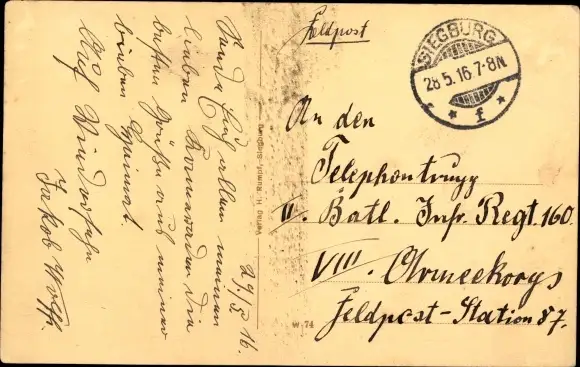 Feldpost
SIEGBURG
28.5.16.7-8N.
* f *
An den
Telephontrupp
II. Batl. Infr. Regt 160
VIII. Armeekorps
Feldpost-Station 87.
29./5. 16.
Sende Euch allen meinen
lieben Kameraden die
besten Grüße aus meiner
lieben Heimat.
Auf Wiedersehn
Jakob Wolff.
Verlag H. Rumpf, Siegburg
W 74